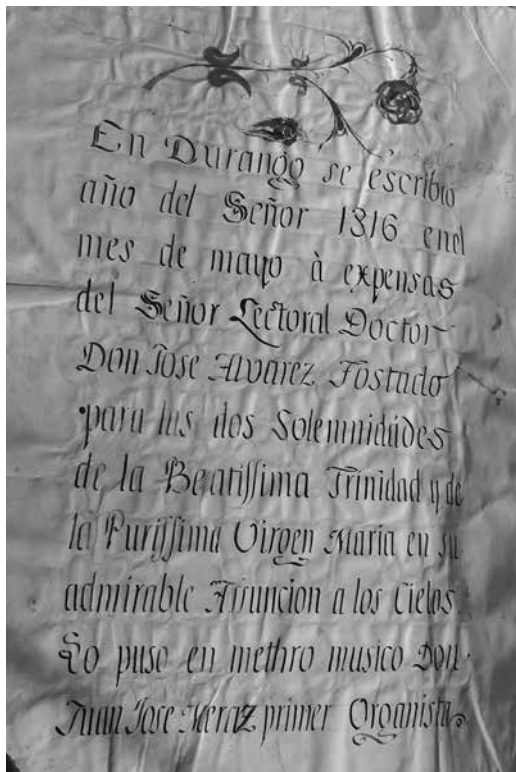 En Durango se escribio
año del Señor 1816 enel
mes de mayo à expensas
del Señor Lectoral Doctor
Don Jose Alvarez Tostado
para las dos Solemnidades
de la Beatissima Trinidad y de
la Purissima Virgen Maria en su
admirable Asuncion a los Cielos.
Lo puso en methro musico Don
Juan Jose Meraz primer Organista